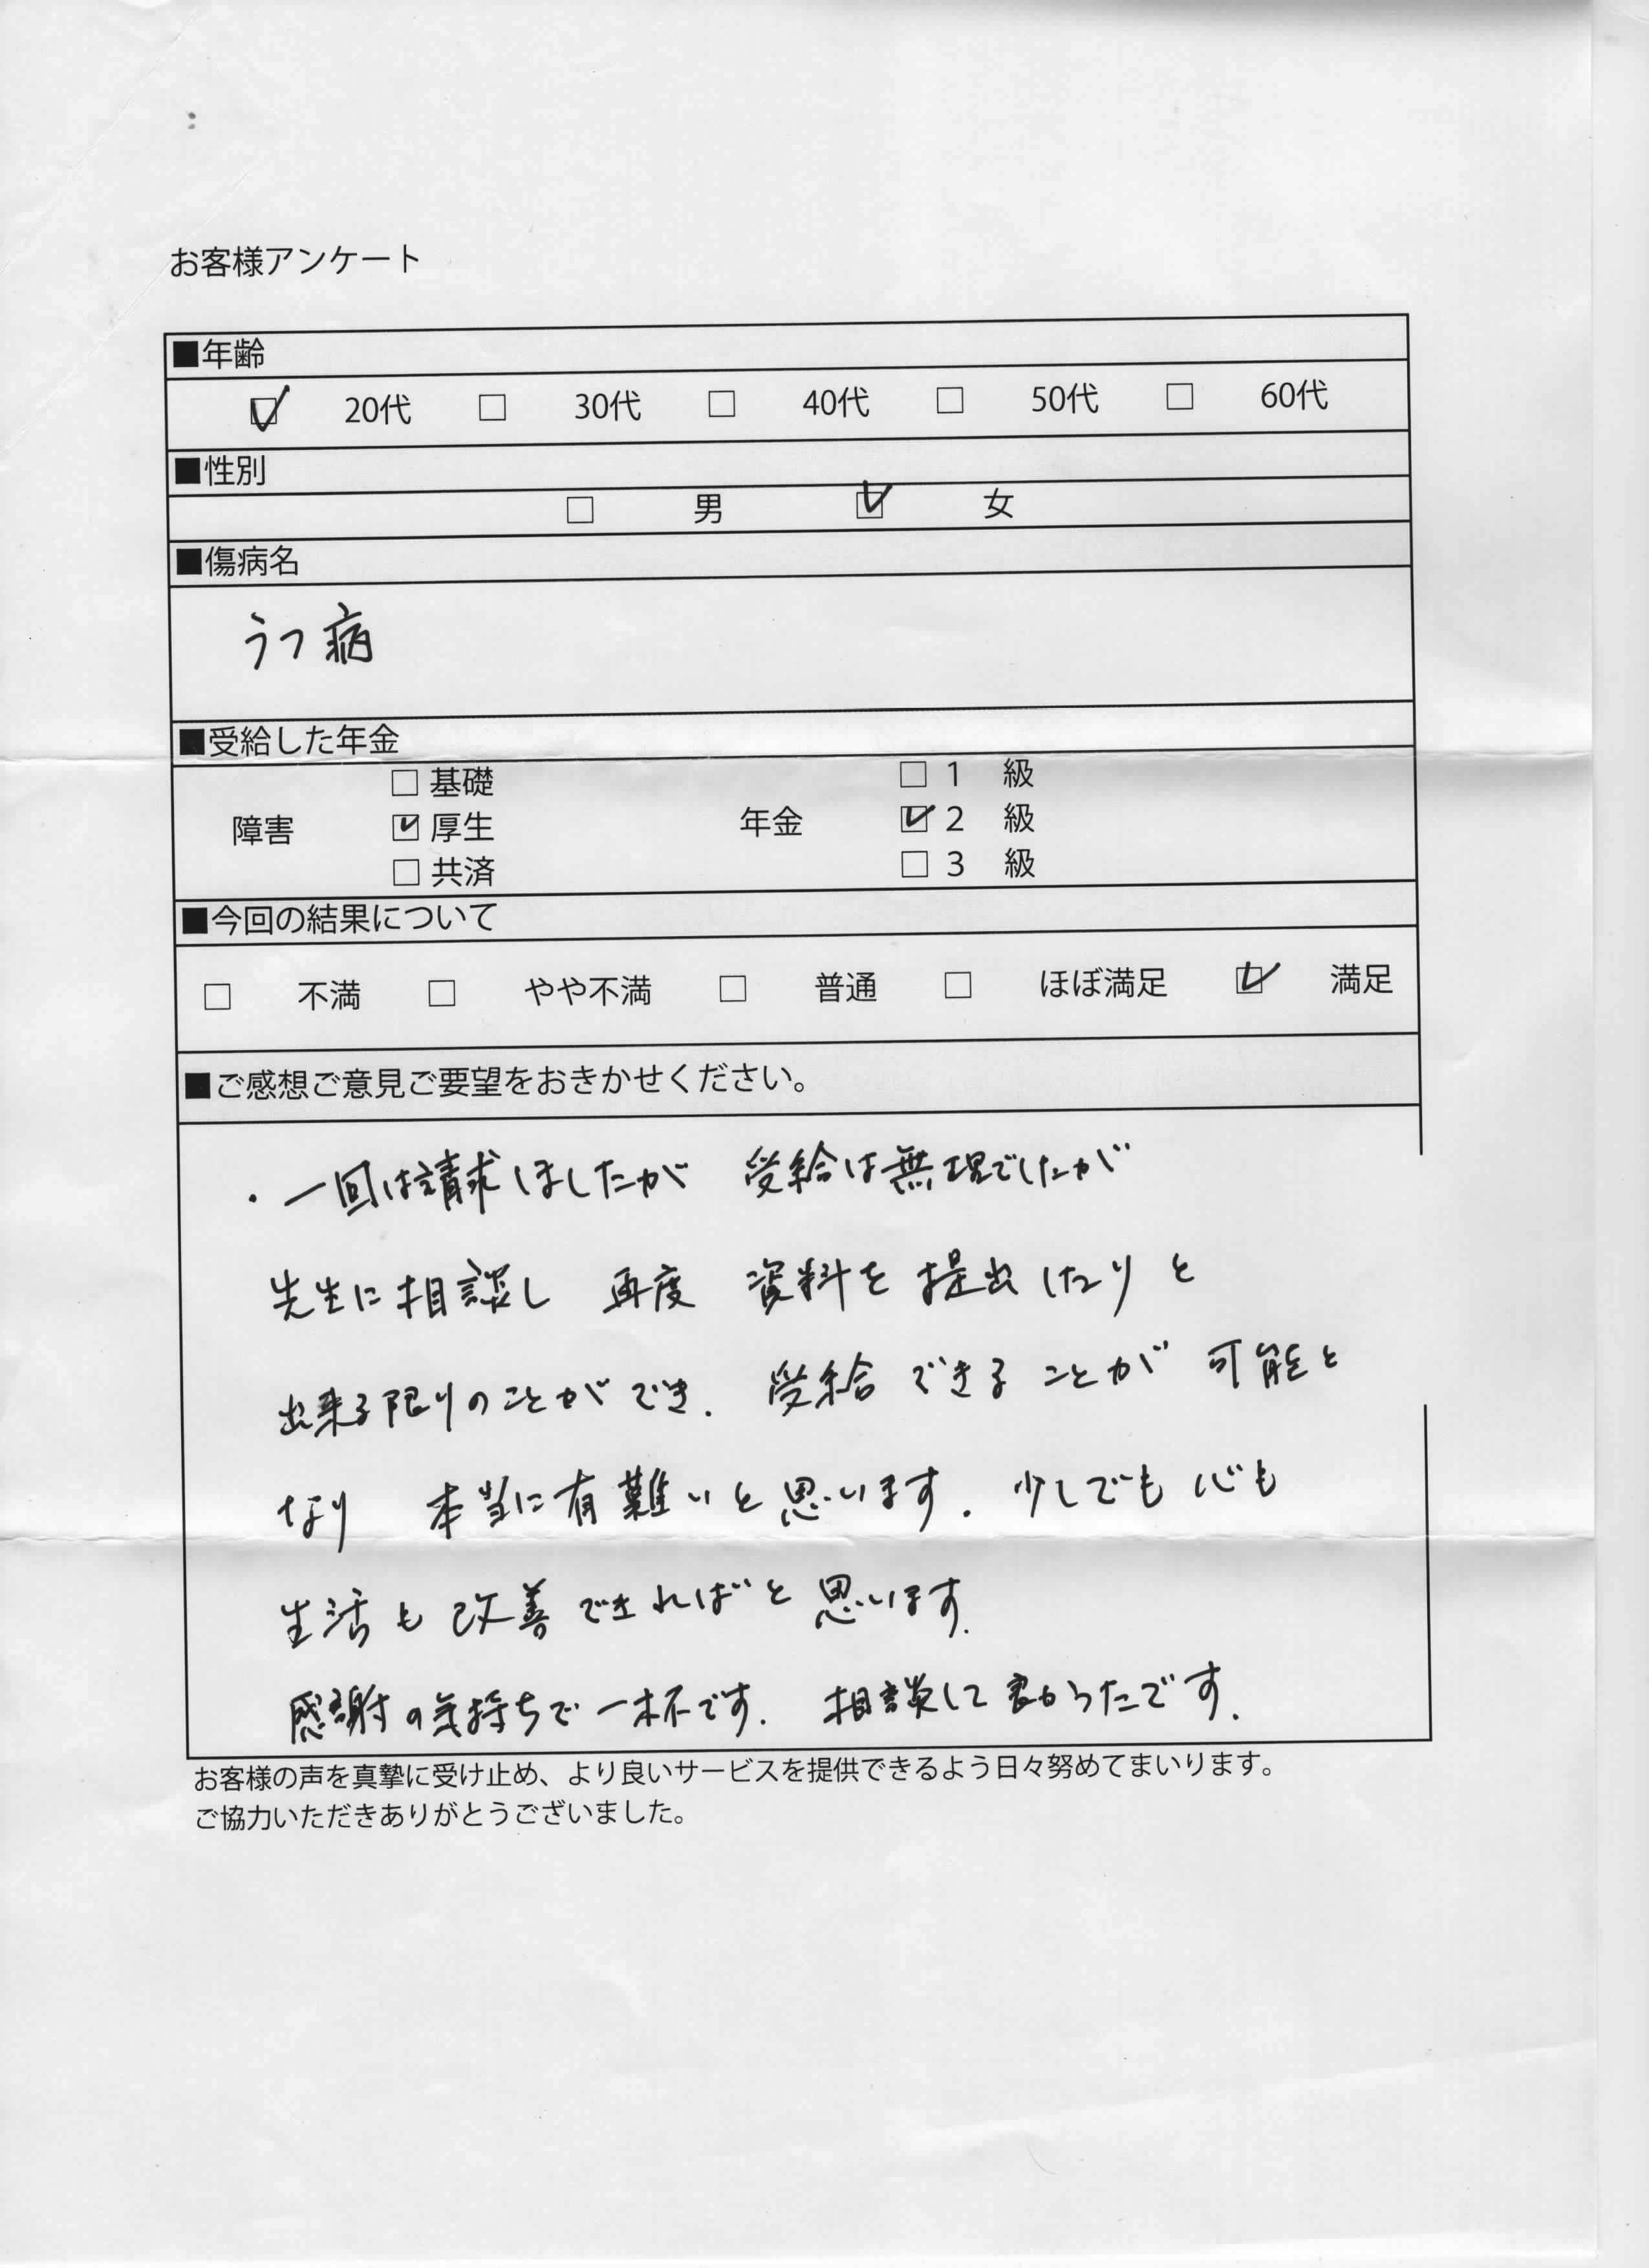 お客様アンケート
■年齢
☑ 20代 □ 30代 □ 40代 □ 50代 □ 60代
■性別
□ 男 ☑ 女
■傷病名
うつ病
■受給した年金
□ 基礎 □ 1 級
障害 ☑ 厚生 年金 ☑ 2 級
□ 共済 □ 3 級
■今回の結果について
□ 不満 □ やや不満 □ 普通 □ ほぼ満足 ☑ 満足
■ご感想ご意見ご要望をおきかせください。
・一回は請求しましたが 受給は無理でしたが
先生に相談し 再度 資料を提出したりと
出来る限りのことができ、受給できることが可能と
なり 本当に有難いと思います。少しでも心も
生活も改善できればと思います。
感謝の気持ちで一杯です。相談して良かったです。
お客様の声を真摯に受け止め、より良いサービスを提供できるよう日々努めてまいります。
ご協力いただきありがとうございました。